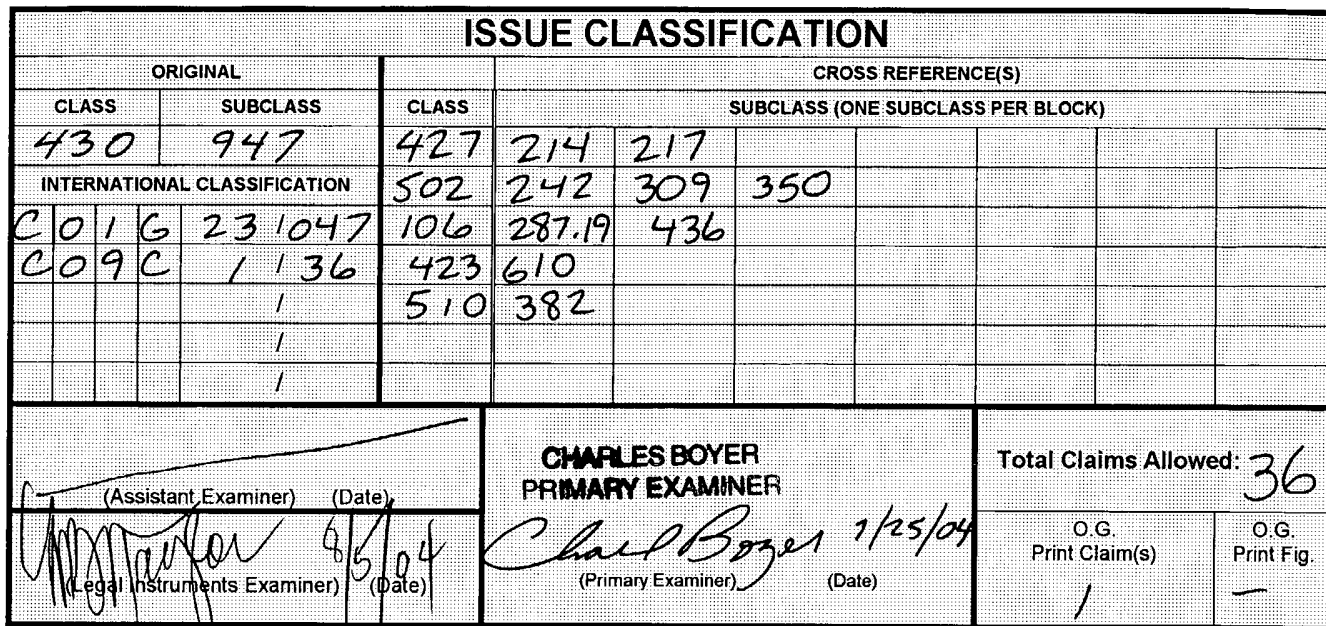 ISSUE CLASSIFICATION
ORIGINAL CROSS REFERENCE(S)
CLASS SUBCLASS CLASS SUBCLASS (ONE SUBCLASS PER BLOCK)
430 947 427 214 217
INTERNATIONAL CLASSIFICATION 502 242 309 350
C 0 1 G 23 / 047 106 287.19 436
C 0 9 C 1 / 36 423 610
/ 510 382
/
/
(Assistant Examiner) (Date)
8/5/04
(Legal Instruments Examiner) (Date)
CHARLES BOYER
PRIMARY EXAMINER
Boyer 7/25/04
(Primary Examiner) (Date)
Total Claims Allowed: 36
O.G. Print Claim(s) O.G. Print Fig.
1 —